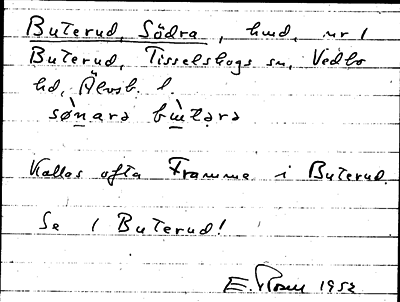 Buterud, Södra, hmd, nr 1
Buterud, Tisselskogs sn, Vedbo
hd, Älvsb. l.
Kallas ofta Framme i Buterud.
Se 1 Buterud!
E. Rosell 1952